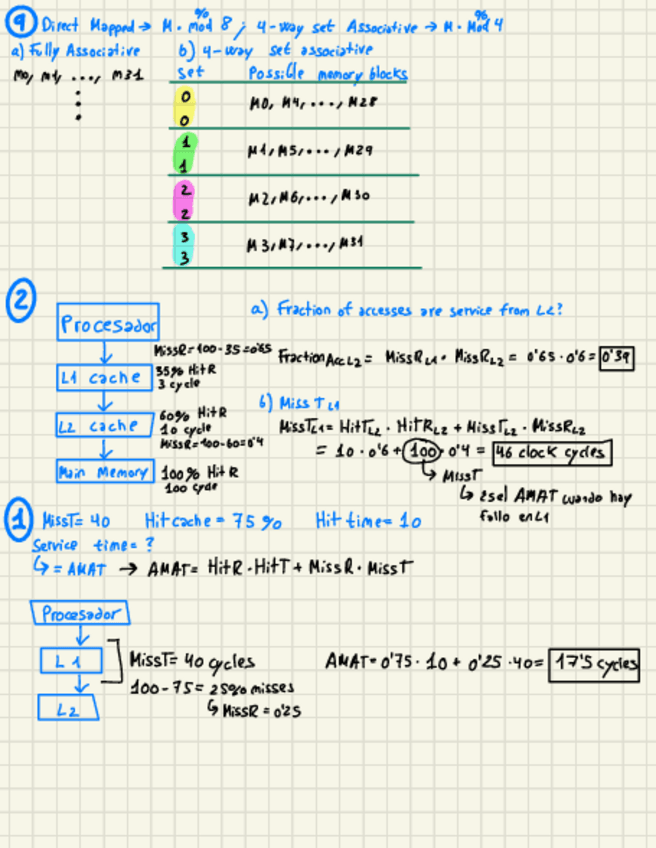 9 Direct Mapped → M. mod 8 ; 4-way set Associative → M. Mod 4
% %
a) Fully Associative b) 4-way set associative
M0, M1, ..., M31
set Possible memory blocks
0 M0, M4, ..., M28
0
1 M1, M5, ..., M29
1
2 M2, M6, ..., M30
2
3 M3, M7, ..., M31
3
2
a) Fraction of accesses are service from L2?
Procesador
MissR=100-35=0'65
L1 cache 35% HitR
3 cycle
FractionAccL2 = MissRL1 · MissRL2 = 0'65 · 0'6 = 0'39
b) Miss TL1
L2 cache 60% HitR
10 cycle
MissR=100-60=0'4
MissTL1 = HitTL2 · HitRL2 + MissTL2 · MissRL2
= 10 · 0'6 + 100 · 0'4 = 46 clock cycles
→ MissT
Main Memory 100% HitR
100 cycle
↳ es el AMAT cuando hay
fallo en L1
1 MissT= 40 Hit cache = 75 % Hit time = 10
Service time= ?
↳ = AMAT → AMAT= HitR · HitT + MissR · MissT
Procesador
L1 MissT= 40 cycles
100-75= 25% misses
↳ MissR = 0'25
L2
AMAT= 0'75 · 10 + 0'25 · 40= 17'5 cycles